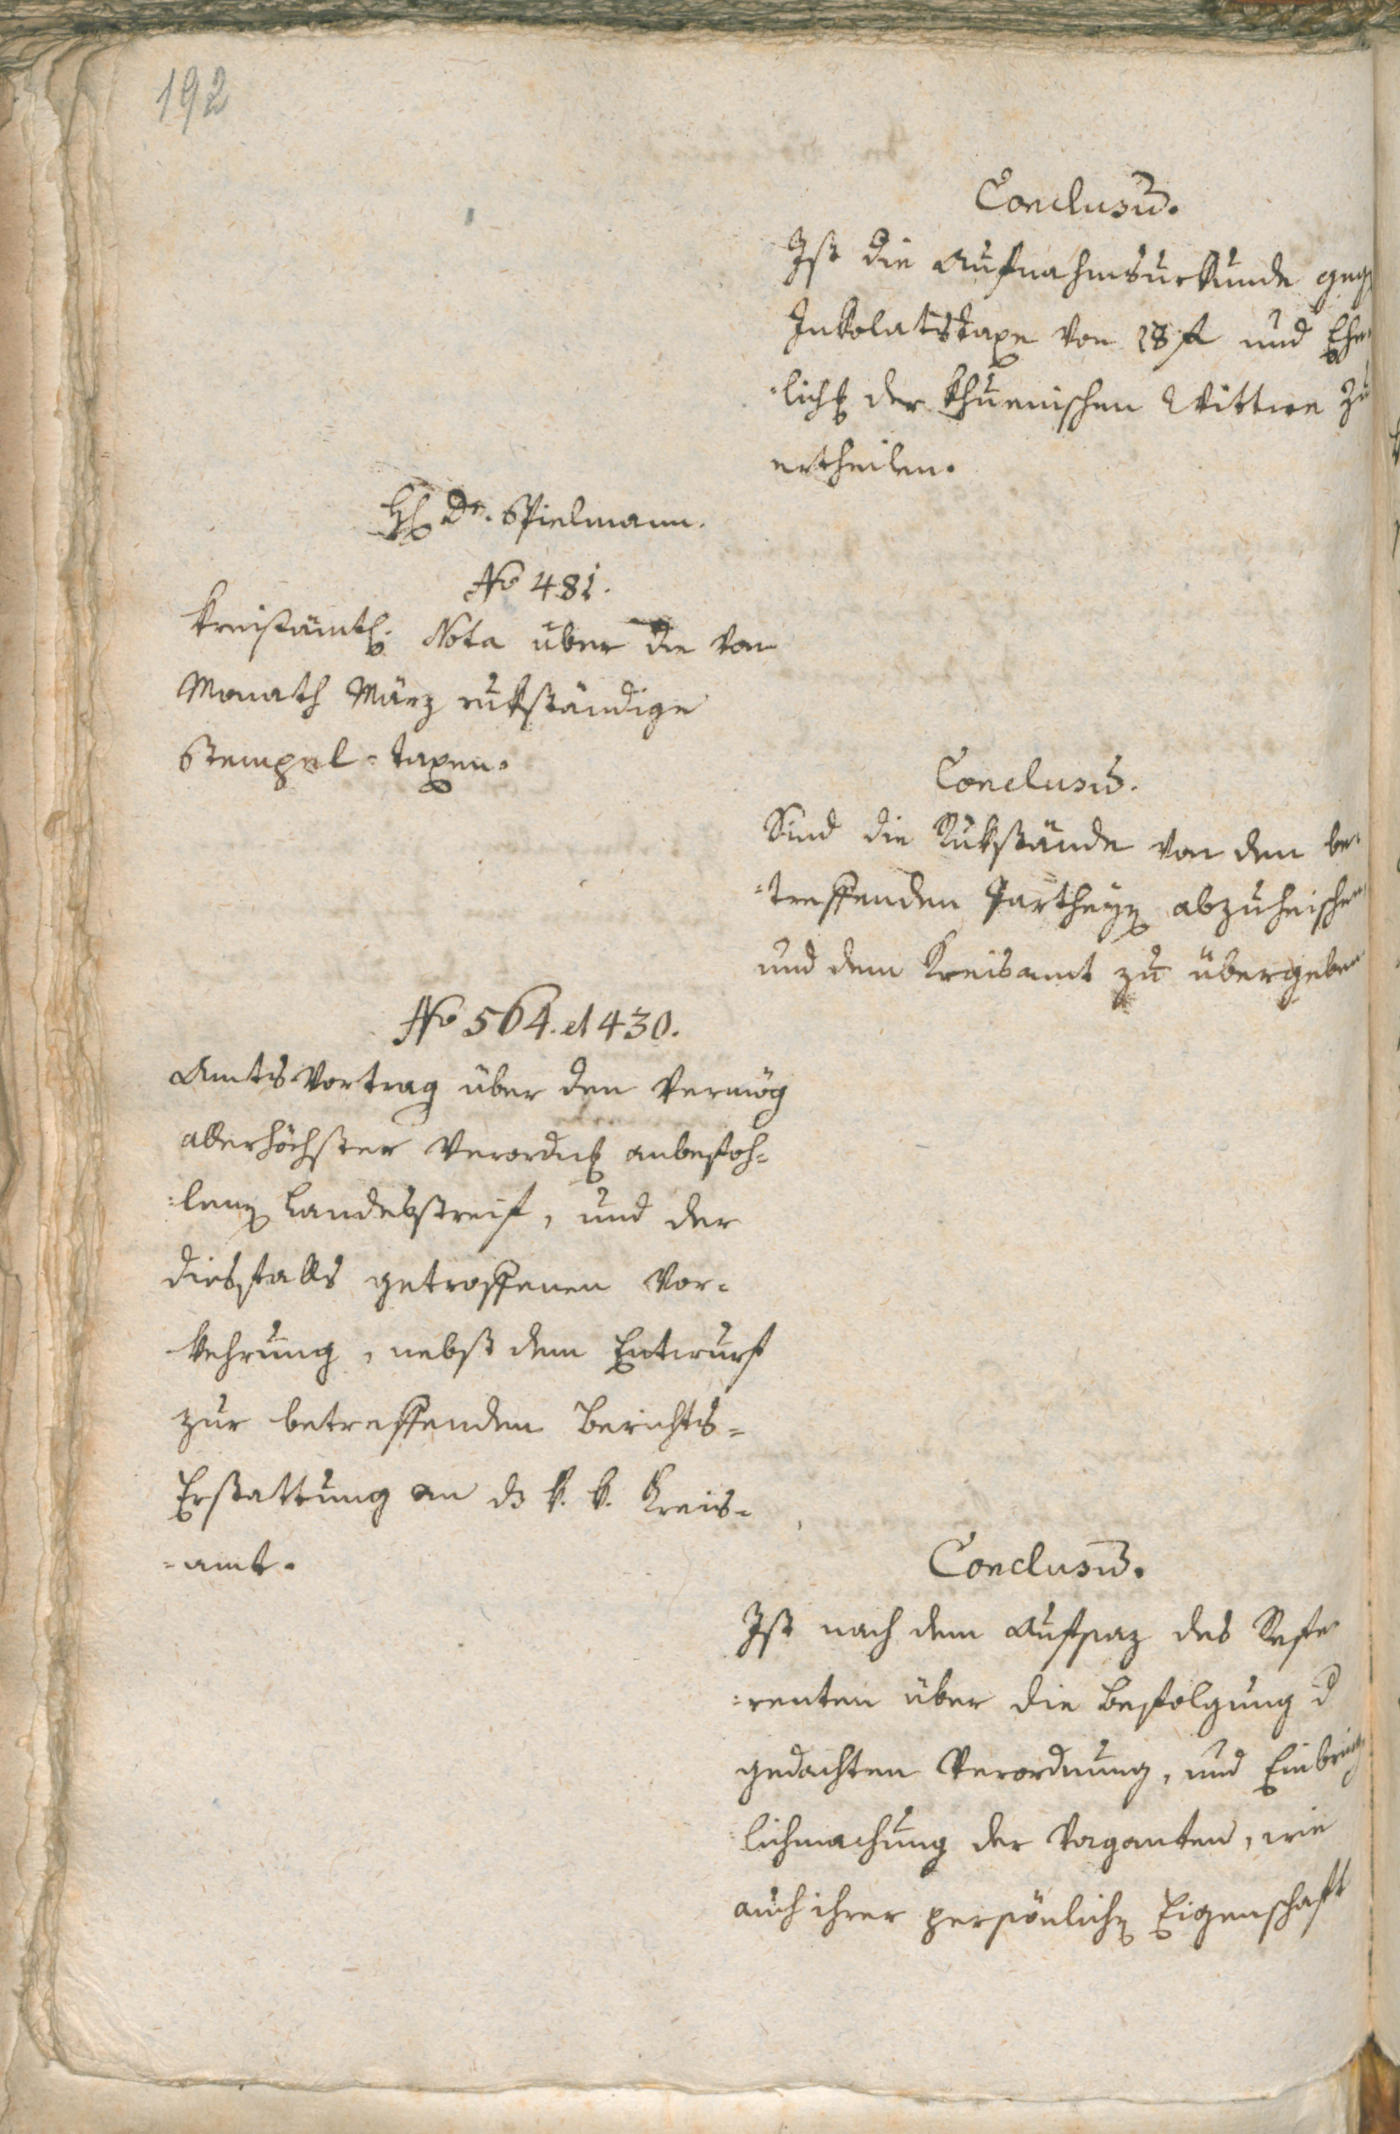 192
Conclusũ.
Ist die Aufnahmsurkunde geg
Inkolatstaxe von 28 f und
lich der Khuenischen Wittwe zu
ertheilen.
H Dr. Spielmann.
No 481.
Kreisämtl. Nota über die von
Monath März rukständige
Stempel-taxen.
Conclusũ.
Sind die Rükstände von den be-
-treffenden Partheyen abzuheischen
und dem Kreisamt zu übergeben
No 564. et 430.
Amts Vortrag über den vermög
allerhöchster Verordng anbefoh-
-lenen Landesstreif, und der
diesfalls getroffenen Vor-
kehrung, nebst dem Entwurf
zur betreffenden Berichts-
Erstattung an das k. k. Kreis-
-amt.
Conclusũ.
Ist nach dem Aufsaz des Refe
-renten über die Befolgung d
gedachten Verordnung, und Einbring
lichmachung der Vaganten, wie
auch ihrer persönlichen Eigenschaft